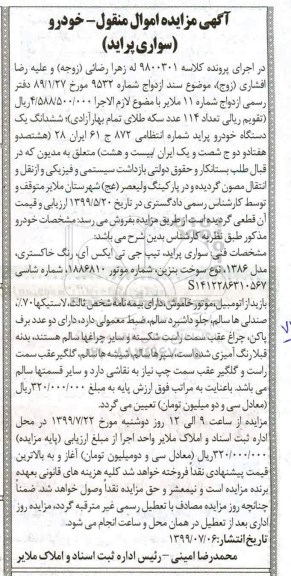 آگهی مزایده اموال منقول- خودرو
(سواری پراید)
در اجرای پرونده کلاسه ۹۸۰۰۳۰۱ له زهرا رضائی (زوجه) و علیه رضا
افشاری (زوج)، موضوع سند ازدواج شماره ۹۵۳۲ مورخ ۸۹/۱/۲۷ دفتر
رسمی ازدواج شماره ۱۱ ملایر با مضوع لازم الاجرا ۴/۵۸۸/۵۰۰/۰۰۰ریال
(تقویم ریالی تعداد ۱۱۴ عدد سکه طلای تمام بهارآزادی)؛ ششدانگ یک
دستگاه خودرو پراید شماره انتظامی ۸۷۲ ج ۶۱ ایران ۲۸ (هشتصدو
هفتادو دو ج شصت و یک ایران /بیست و هشت) متعلق به مدیون که در
قبال طلب بستانکار و حقوق دولتی بازداشت سیستمی و فیزیکی و ازنقل و
انتقال مصون گردیده و در پارکینگ ولیعصر (عج) شهرستان ملایر متوقف و
توسط کارشناس رسمی دادگستری در تاریخ ۱۳۹۹/۵/۲۰ ارزیابی و قیمت
آن قطعی گردیده است از طریق مزایده بفروش می رسد: مشخصات خودرو
مذکور طبق نظریه کارشناس بدین شرح می باشد:
مشخصات فنی: سواری پراید، تیپ جی تی ایکس آی، رنگ خاکستری،
مدل ۱۳۸۶، نوع سوخت بنزین، شماره موتور ۱۸۸۶۸۱۰، شماره شاسی
S۱۴۱۲۲۸۶۳۱۰۵۶۷
بازیداز اتومبیل، موتور خاموش، دارای بیمه نامه شخص ثالث، لاستیکها ۷۰٪،
صندلی ها سالم، جلو داشبرد سالم، ضبط معمولی دارد، دارای دو عدد برف
پاکن، چراغ عقب سمت راست شکسته و سایر چراغها سالم هستند، بدنه
قبلا رنگ آمیزی شده است، سپرها سالم، شیشه ها سالم، گلگیر عقب سمت
راست و گلگیر عقب سمت چپ نیاز به نقاشی دارد و سایر قسمتها سالم
می باشد. باعنایت به مراتب فوق ارزش پایه به مبلغ ۳۲۰/۰۰۰/۰۰۰ریال
(معادل سی و دومیلیون تومان) تعیین می گردد.
مزایده از ساعت ۹ الی ۱۲ روز دوشنبه مورخ ۱۳۹۹/۷/۲۲ در محل
اداره ثبت اسناد و املاک ملایر واحد اجرا از مبلغ ارزیابی (پایه مزایده)
۳۲۰/۰۰۰/۰۰۰ریال (معادل سی و دومیلیون تومان) آغاز و به بالاترین
قیمت پیشنهادی نقداً فروخته خواهد شد کلیه هزینه های قانونی بعهده
برنده مزایده است و نیمعشر و حق مزایده نقداً وصول خواهد شد. ضمناً
چنانچه روز مزایده مصادف با تعطیل رسمی غیر مترقبه گردد، مزایده روز
اداری بعد از تعطیل در همان محل و ساعت انجام می شود.
تاریخ انتشار: ۱۳۹۹/۰۷/۰۶
محمدرضا امینی – رئیس اداره ثبت اسناد و املاک ملایر